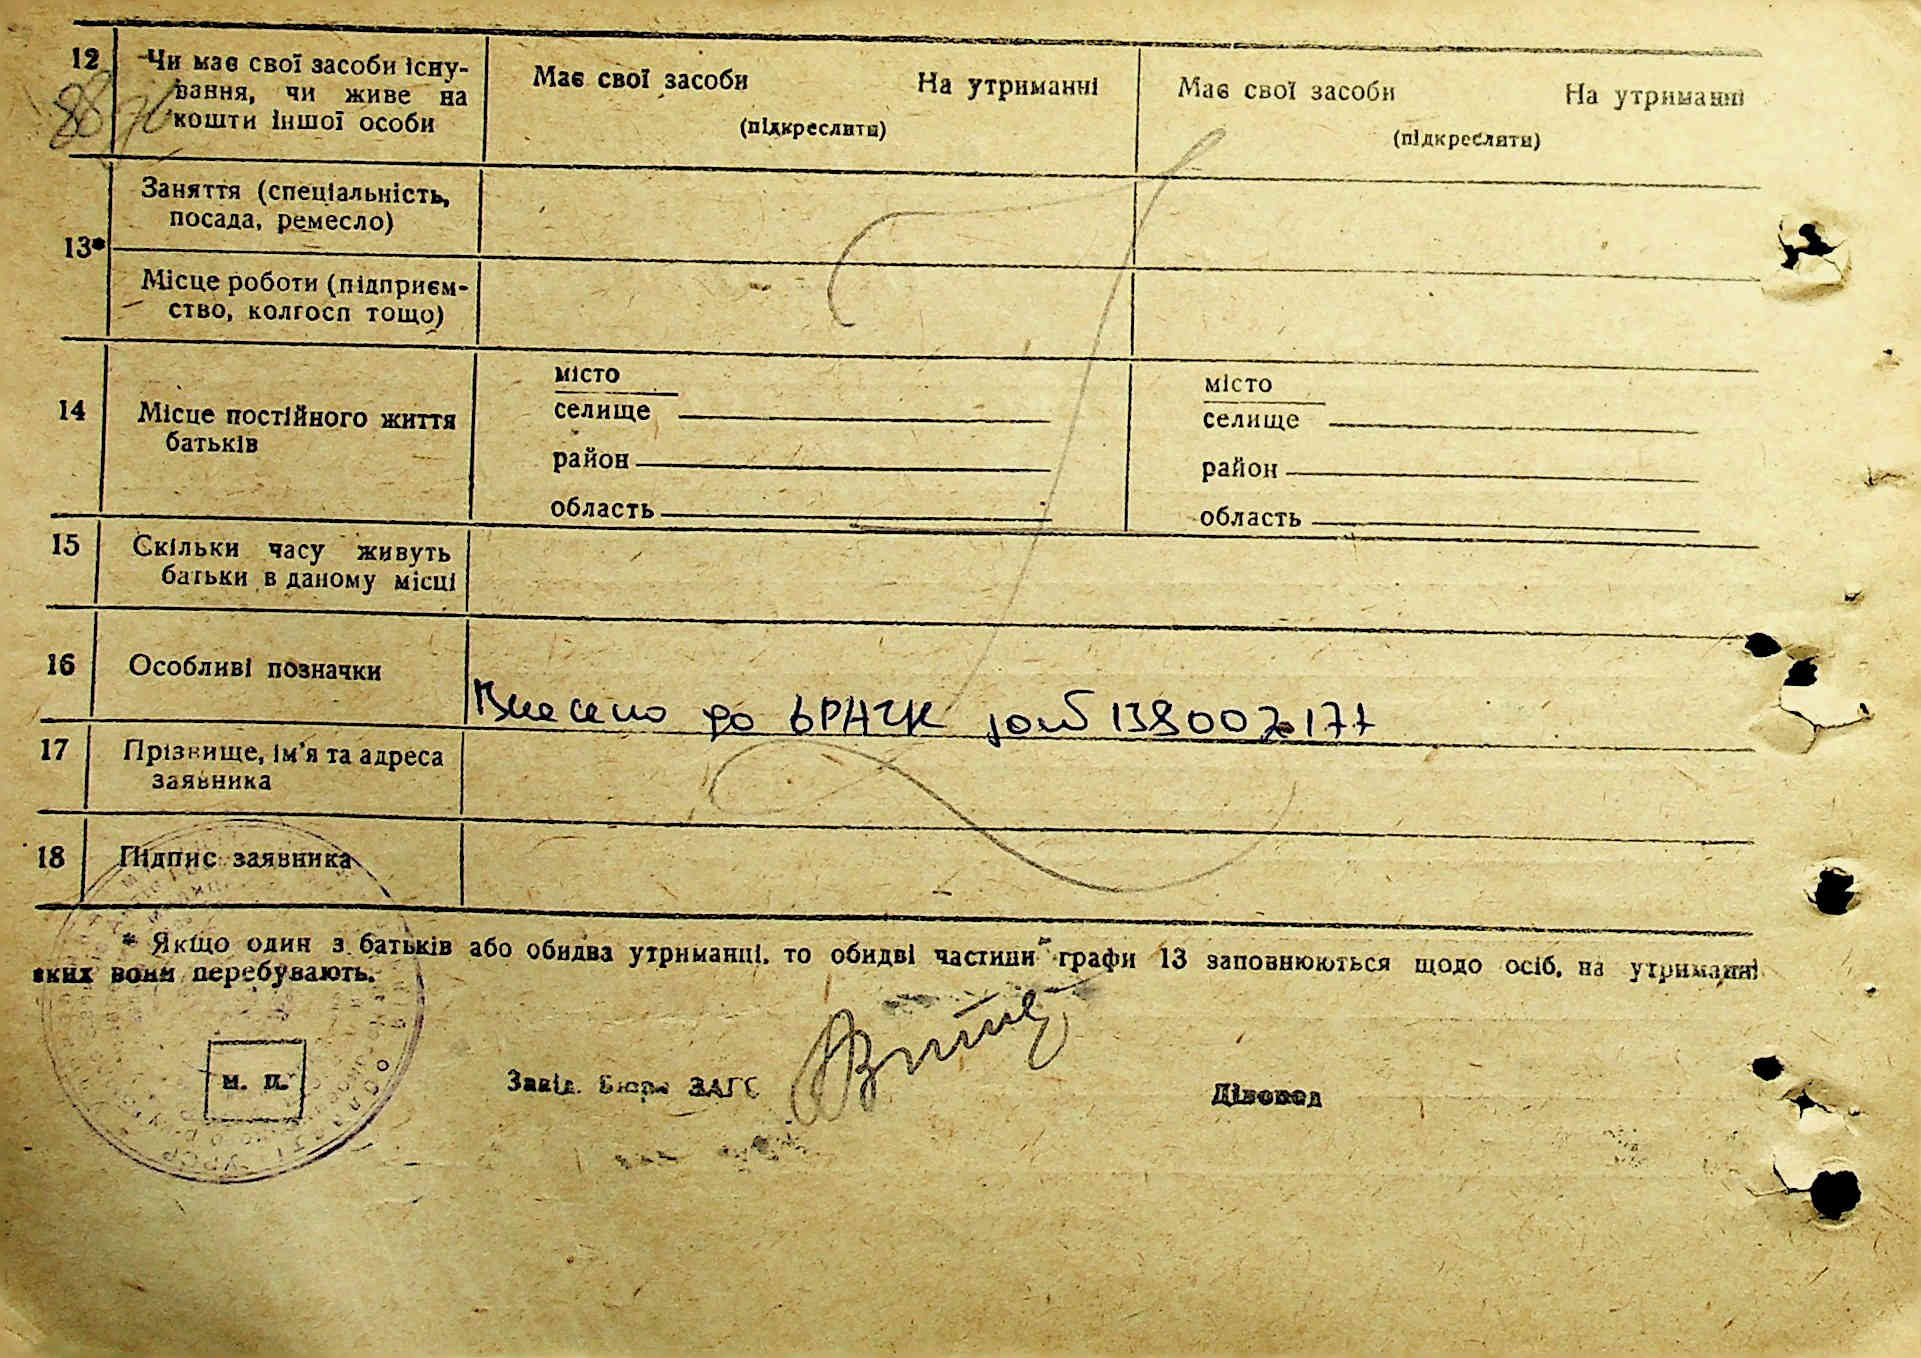 12 Чи має свої засоби існу-
вання, чи живе на
кошти іншої особи
Має свої засоби На утриманні
(підкреслити)
Має свої засоби На утриманні
(підкреслити)
13*
Заняття (спеціальність,
посада, ремесло)
Місце роботи (підприєм-
ство, колгосп тощо)
14 Місце постійного життя
батьків
місто
селище
район
область
місто
селище
район
область
15 Скільки часу живуть
батьки в даному місці
16 Особливі позначки
Внесено до
17 Прізвище, ім'я та адреса
заявника
18 Підпис заявника
* Якщо один з батьків або обидва утриманці, то обидві частини графи 13 заповнюються щодо осіб, на утриманні
яких вони перебувають.
М. П.
Завід. Бюро ЗАГС
Діловод